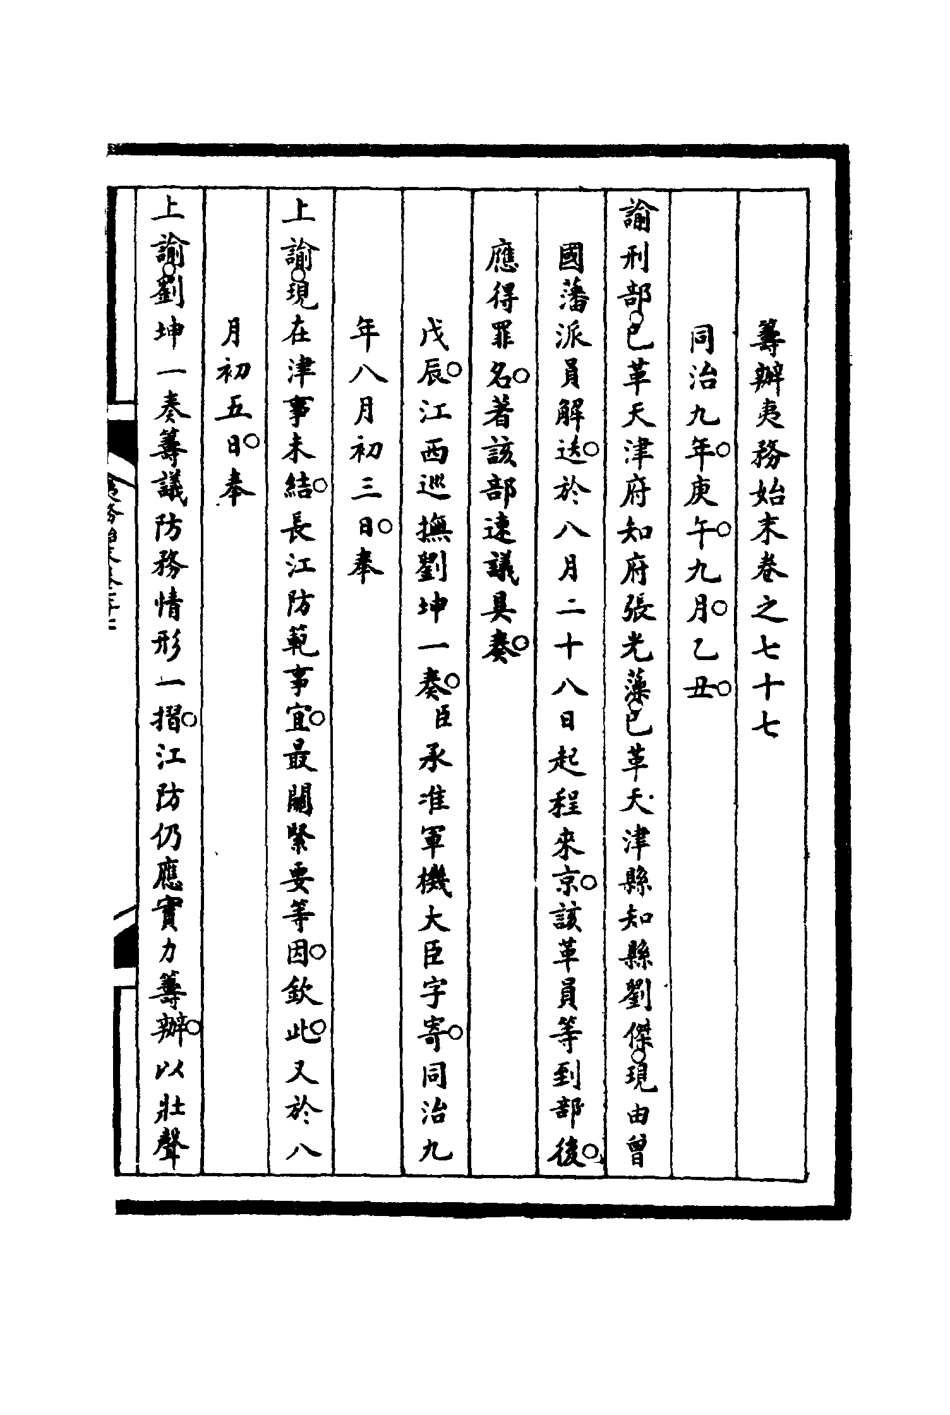 籌辦夷務始末卷之七十七
同治九年。庚午。九月。乙丑。
諭刑部。已革天津府知府張光藻。已革天津縣知縣劉傑。現由曾
國藩派員解送。於八月二十八日起程來京。該革員等到部後。
應得罪名。著該部速議具奏。
戊辰。江西巡撫劉坤一奏。臣承准軍機大臣字寄。同治九
年八月初三日。奉
上諭。現在津事未結。長江防範事宜。最關緊要等因。欽此。又於八
月初五日。奉
上諭。劉坤一奏籌議防務情形一摺。江防仍應實力籌辦。以壯聲